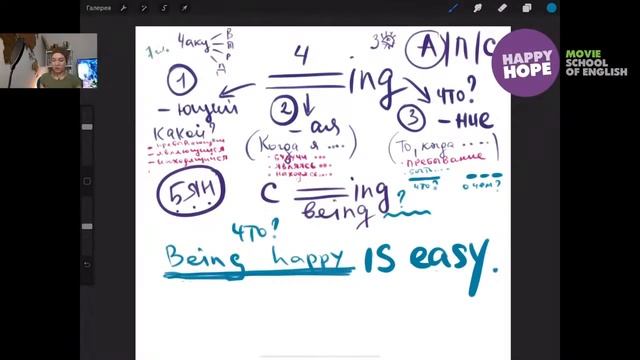 Галерея
HAPPY
HOPE
MOVIE
SCHOOL
OF ENGLISH
4 аку
В
П
Р
Д
4
3
А/П/С
1
ing
что?
- ющий
2
3
- ние
Какой?
- ая
(Когда я ....)
(То, когда ....)
• являющийся
• находящийся
• будучи ...
• являясь ...
• находясь ...
• пребывание
что?
о чем?
БЯН
с ing ?
being
что?
Being happy is easy.